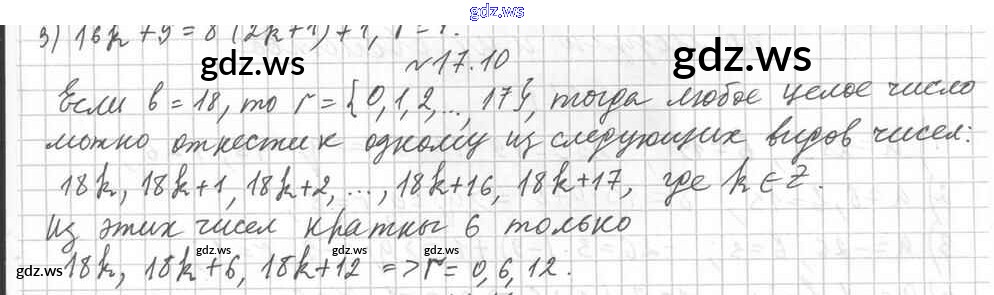 gdz.ws
3) 16k + 9 = 8 (2k+1) + 1, r = 1.
gdz.ws
gdz.ws
№ 17.10
Если b = 18, то r = {0, 1, 2, ..., 17}, тогда любое целое число
можно отнести к одному из следующих видов чисел:
18k, 18k+1, 18k+2, ..., 18k+16, 18k+17, где k ∈ Z.
Из этих чисел кратны 6 только
gdz.ws gdz.ws gdz.ws gdz.ws
18k, 18k+6, 18k+12 => r = 0, 6, 12.